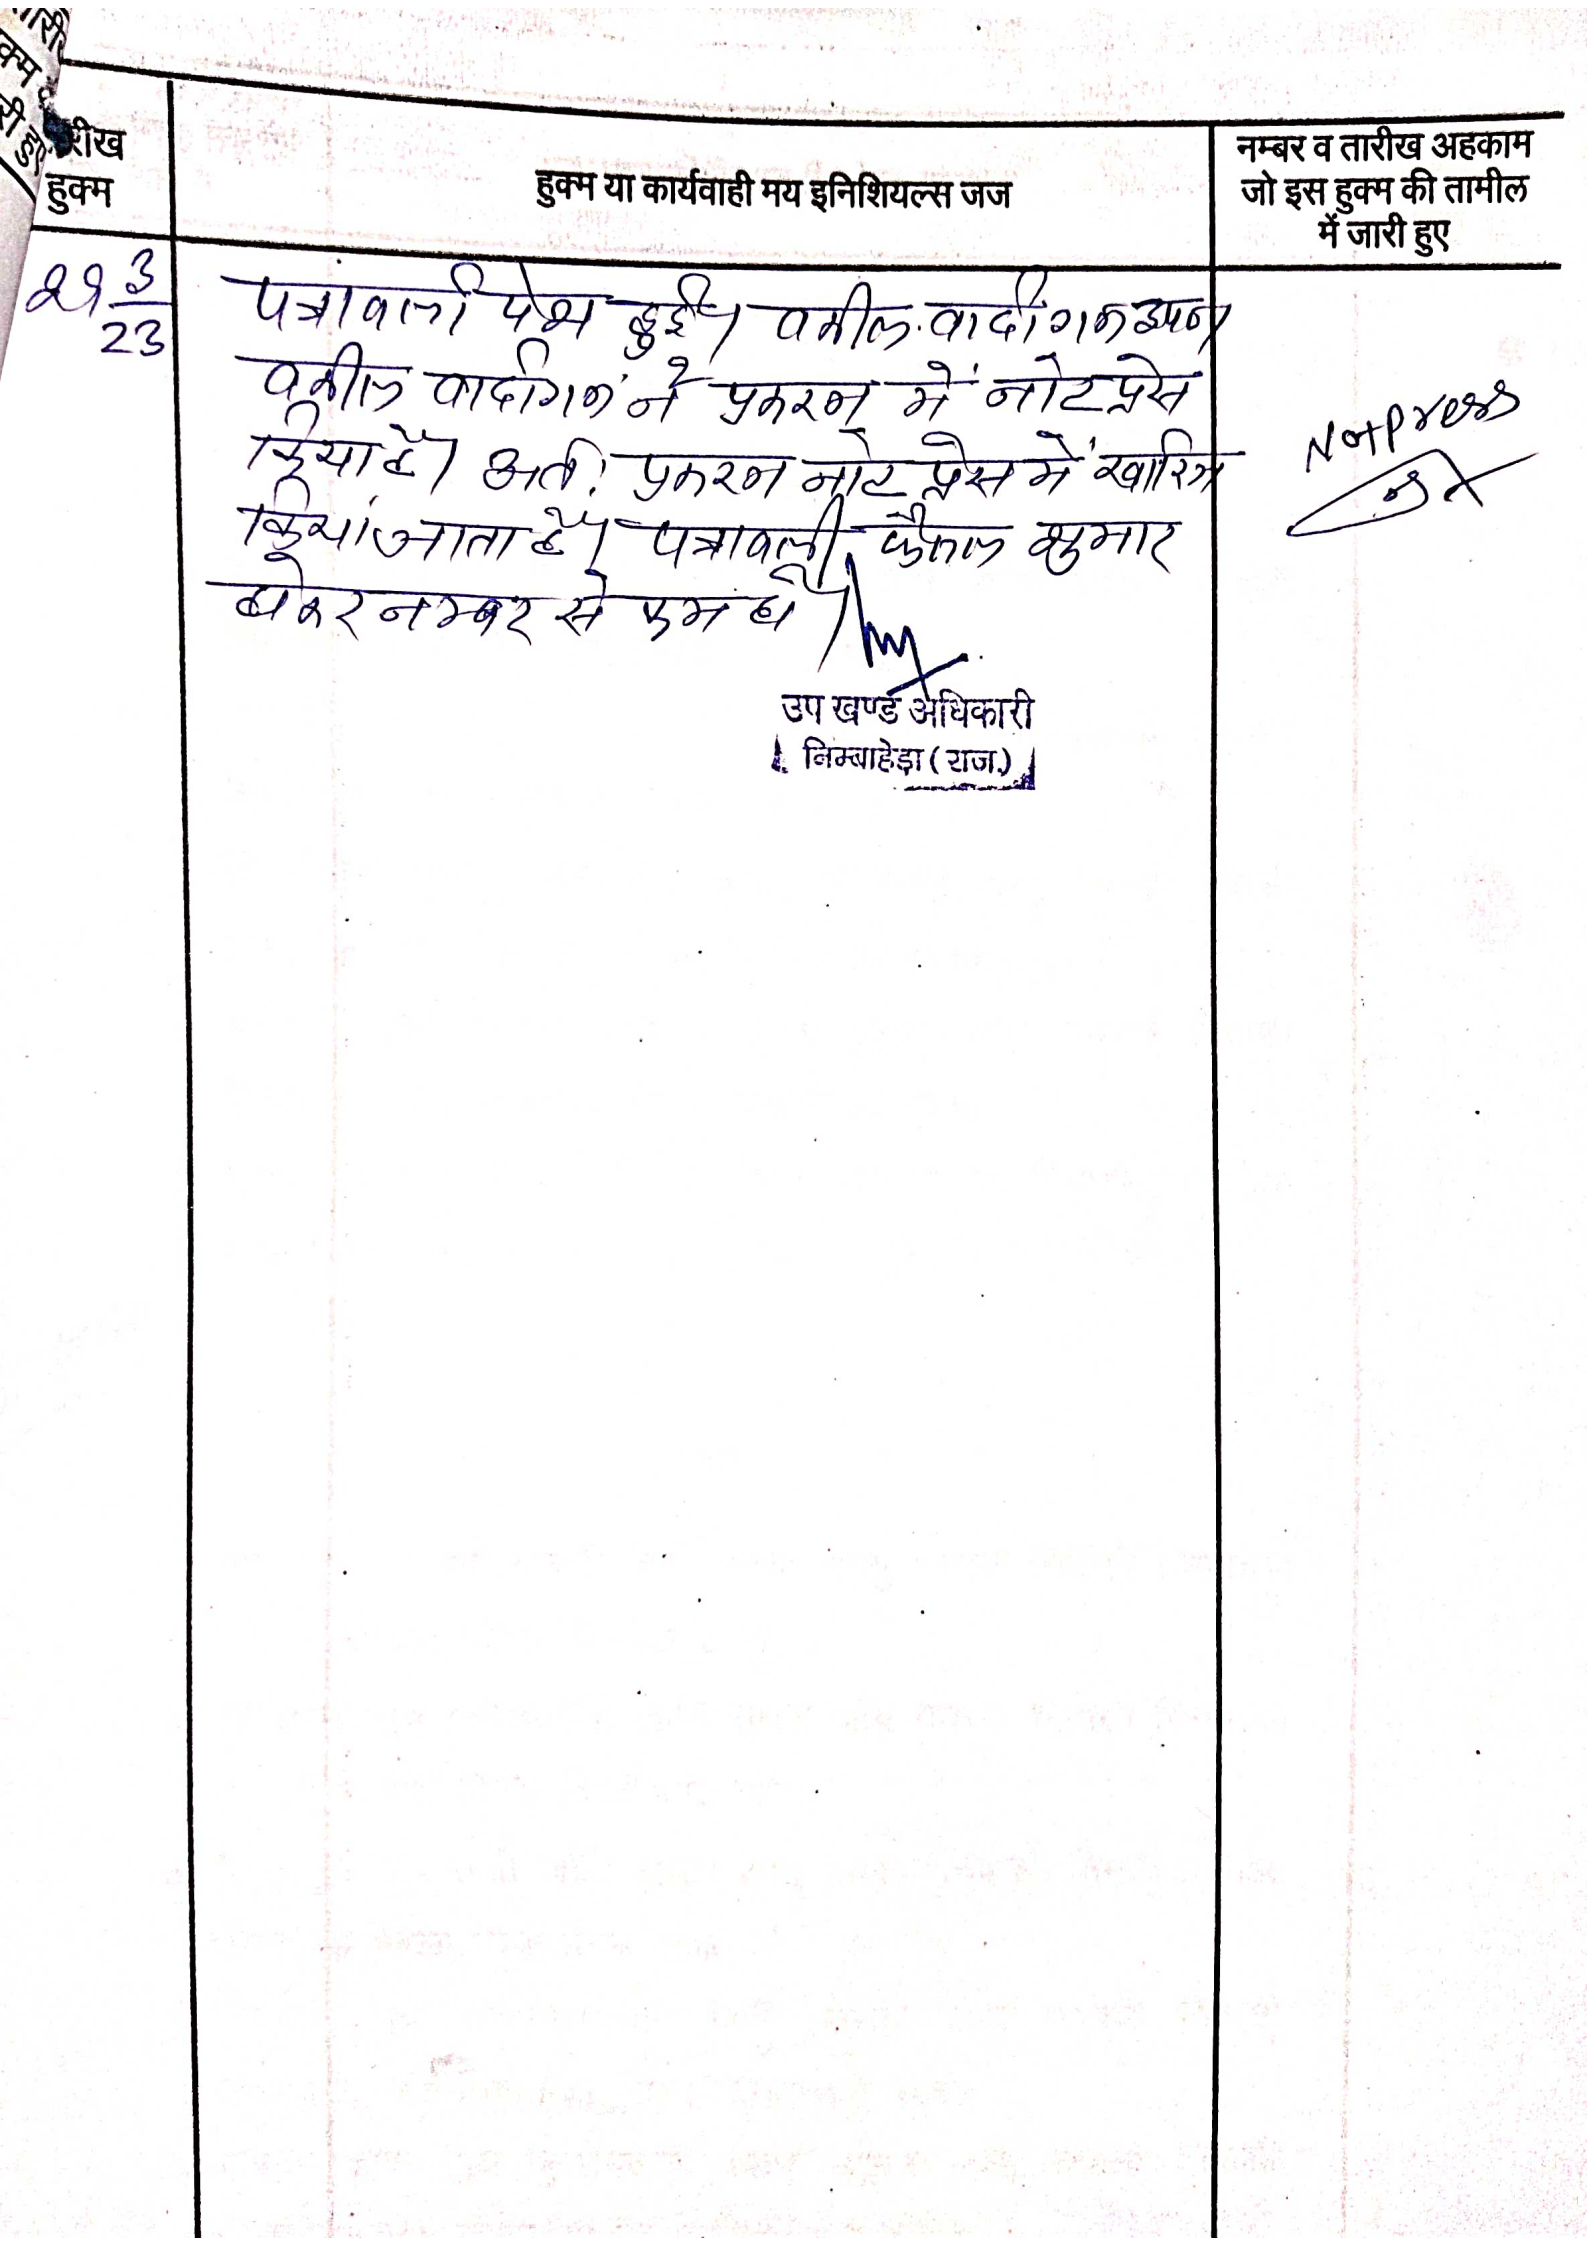 तारीख
हुक्म
हुक्म या कार्यवाही मय इनिशियल्स जज
नम्बर व तारीख अहकाम
जो इस हुक्म की तामील
में जारी हुए
29 3/23
पत्रावली पेश हुई। वकील वादीगण उप०।
वकील वादीगण ने प्रकरण में नोट प्रेस
किया है। अतः प्रकरण नोट प्रेस में खारिज
किया जाता है। पत्रावली फैसल शुमार
होकर नम्बर से कम हो।
Notpress
उप खण्ड अधिकारी
निम्बाहेड़ा (राज.)